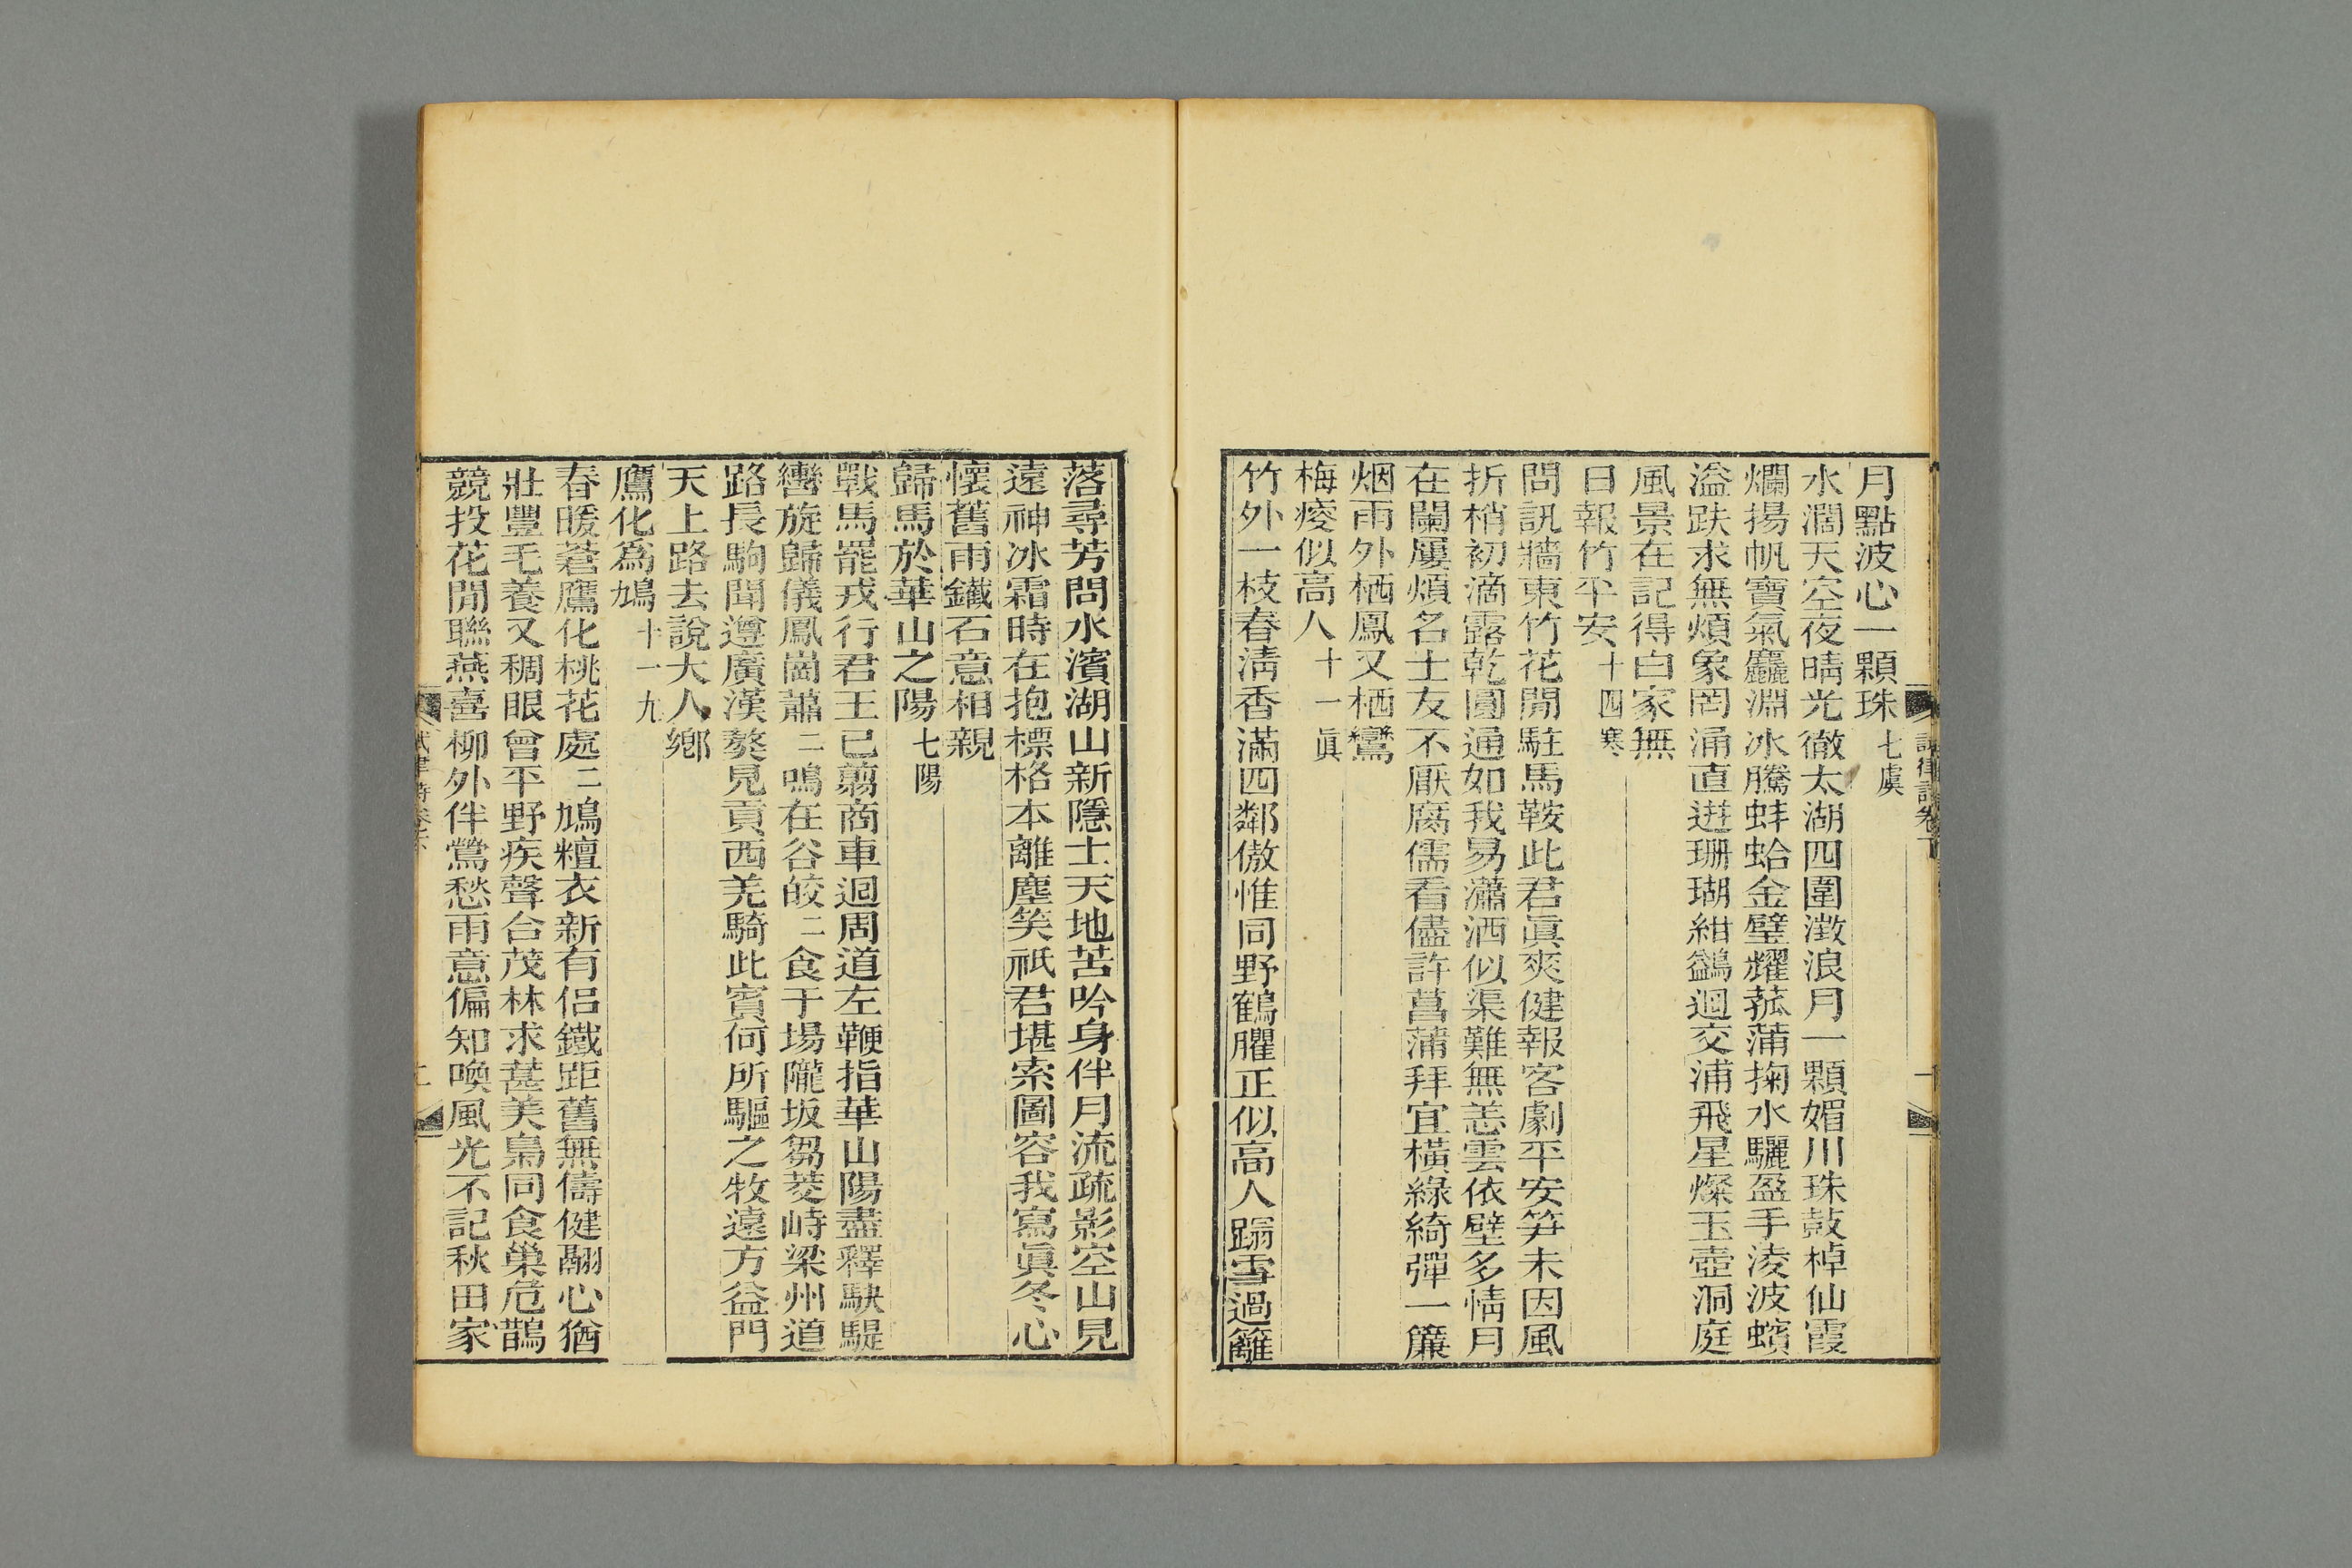 月點波心一顆珠七虞
水濶天空夜晴光徹太湖四圍澂浪月一顆媚川珠鼓棹仙霞
爛揚帆寶氣麤淵冰騰蚌蛤金璧耀菰蒲掬水驪盈手淩波蠙
溢趺求無煩象罔涌直迸珊瑚紺鷁迴交浦飛星燦玉壺洞庭
風景在記得白家無
日報竹平安十四寒
問訊牆東竹花閒駐馬鞍此君眞爽健報客劇平安笋未因風
折梢初滴露乾圓通如我易瀟洒似渠難無恙雲依壁多情月
在闌屢煩名士友不厭腐儒看儘許菖蒲拜宜橫綠綺彈一簾
烟雨外栖鳳又栖鸞
梅瘦似高人十一眞
竹外一枝春淸香滿四鄰傲惟同野鶴臞正似高人蹋雪過籬
落尋芳問水濱湖山新隱士天地苦吟身伴月流疏影空山見
遠神冰霜時在抱標格本離塵笑祇君堪索圖容我寫眞冬心
懷舊雨鐵石意相親
歸馬於華山之陽七陽
戰馬罷戎行君王已翦商車迴周道左鞭指華山陽盡釋駃騠
轡旋歸儀鳳崗蕭二鳴在谷皎二食于場隴坂芻茭峙梁州道
路長駒聞遵廣漢獒見貢西羌騎此賓何所驅之牧遠方益門
天上路去說大人鄉
鷹化爲鳩十一尤
春暖蒼鷹化桃花處二鳩糧衣新有侶鐵距舊無儔健翮心猶
壯豐毛養又稠眼曾平野疾聲合茂林求葚美鴞同食巢危鵲
競投花閒聯燕喜柳外伴鶯愁雨意偏知喚風光不記秋田家